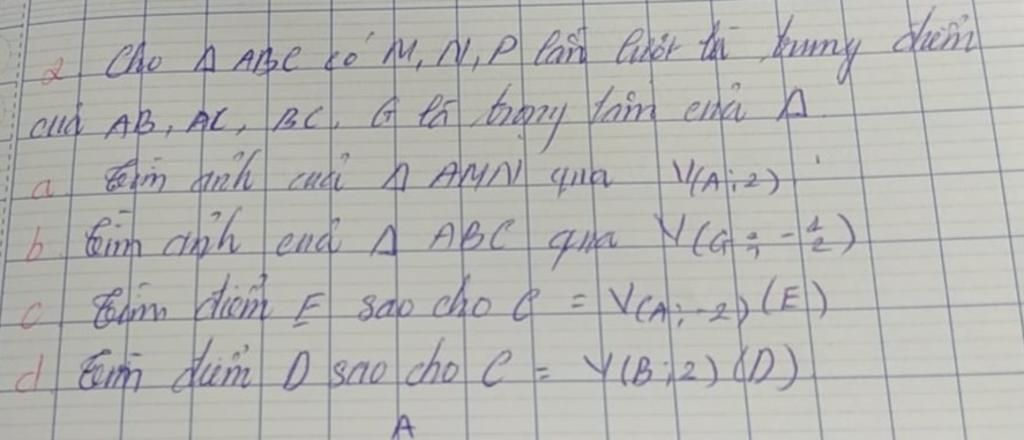 2 Cho Δ ABC có M, N, P lần lượt là trung điểm
của AB, AC, BC. G là trọng tâm của Δ
a tìm ảnh của Δ AMN qua V(A;2)
b tìm ảnh của Δ ABC qua V(G; -1/2)
c tìm điểm E sao cho C = V(A;-2)(E)
d tìm điểm D sao cho C = V(B;2)(D)
A